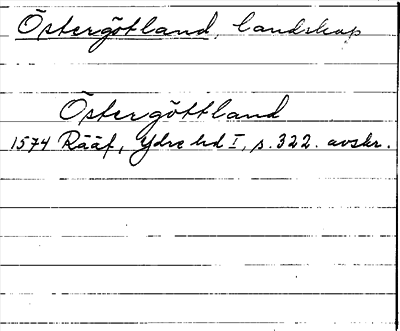 Östergötland, landskap
Östergöttland
1574 Rääf, Ydre hd I, s. 322. avskr.